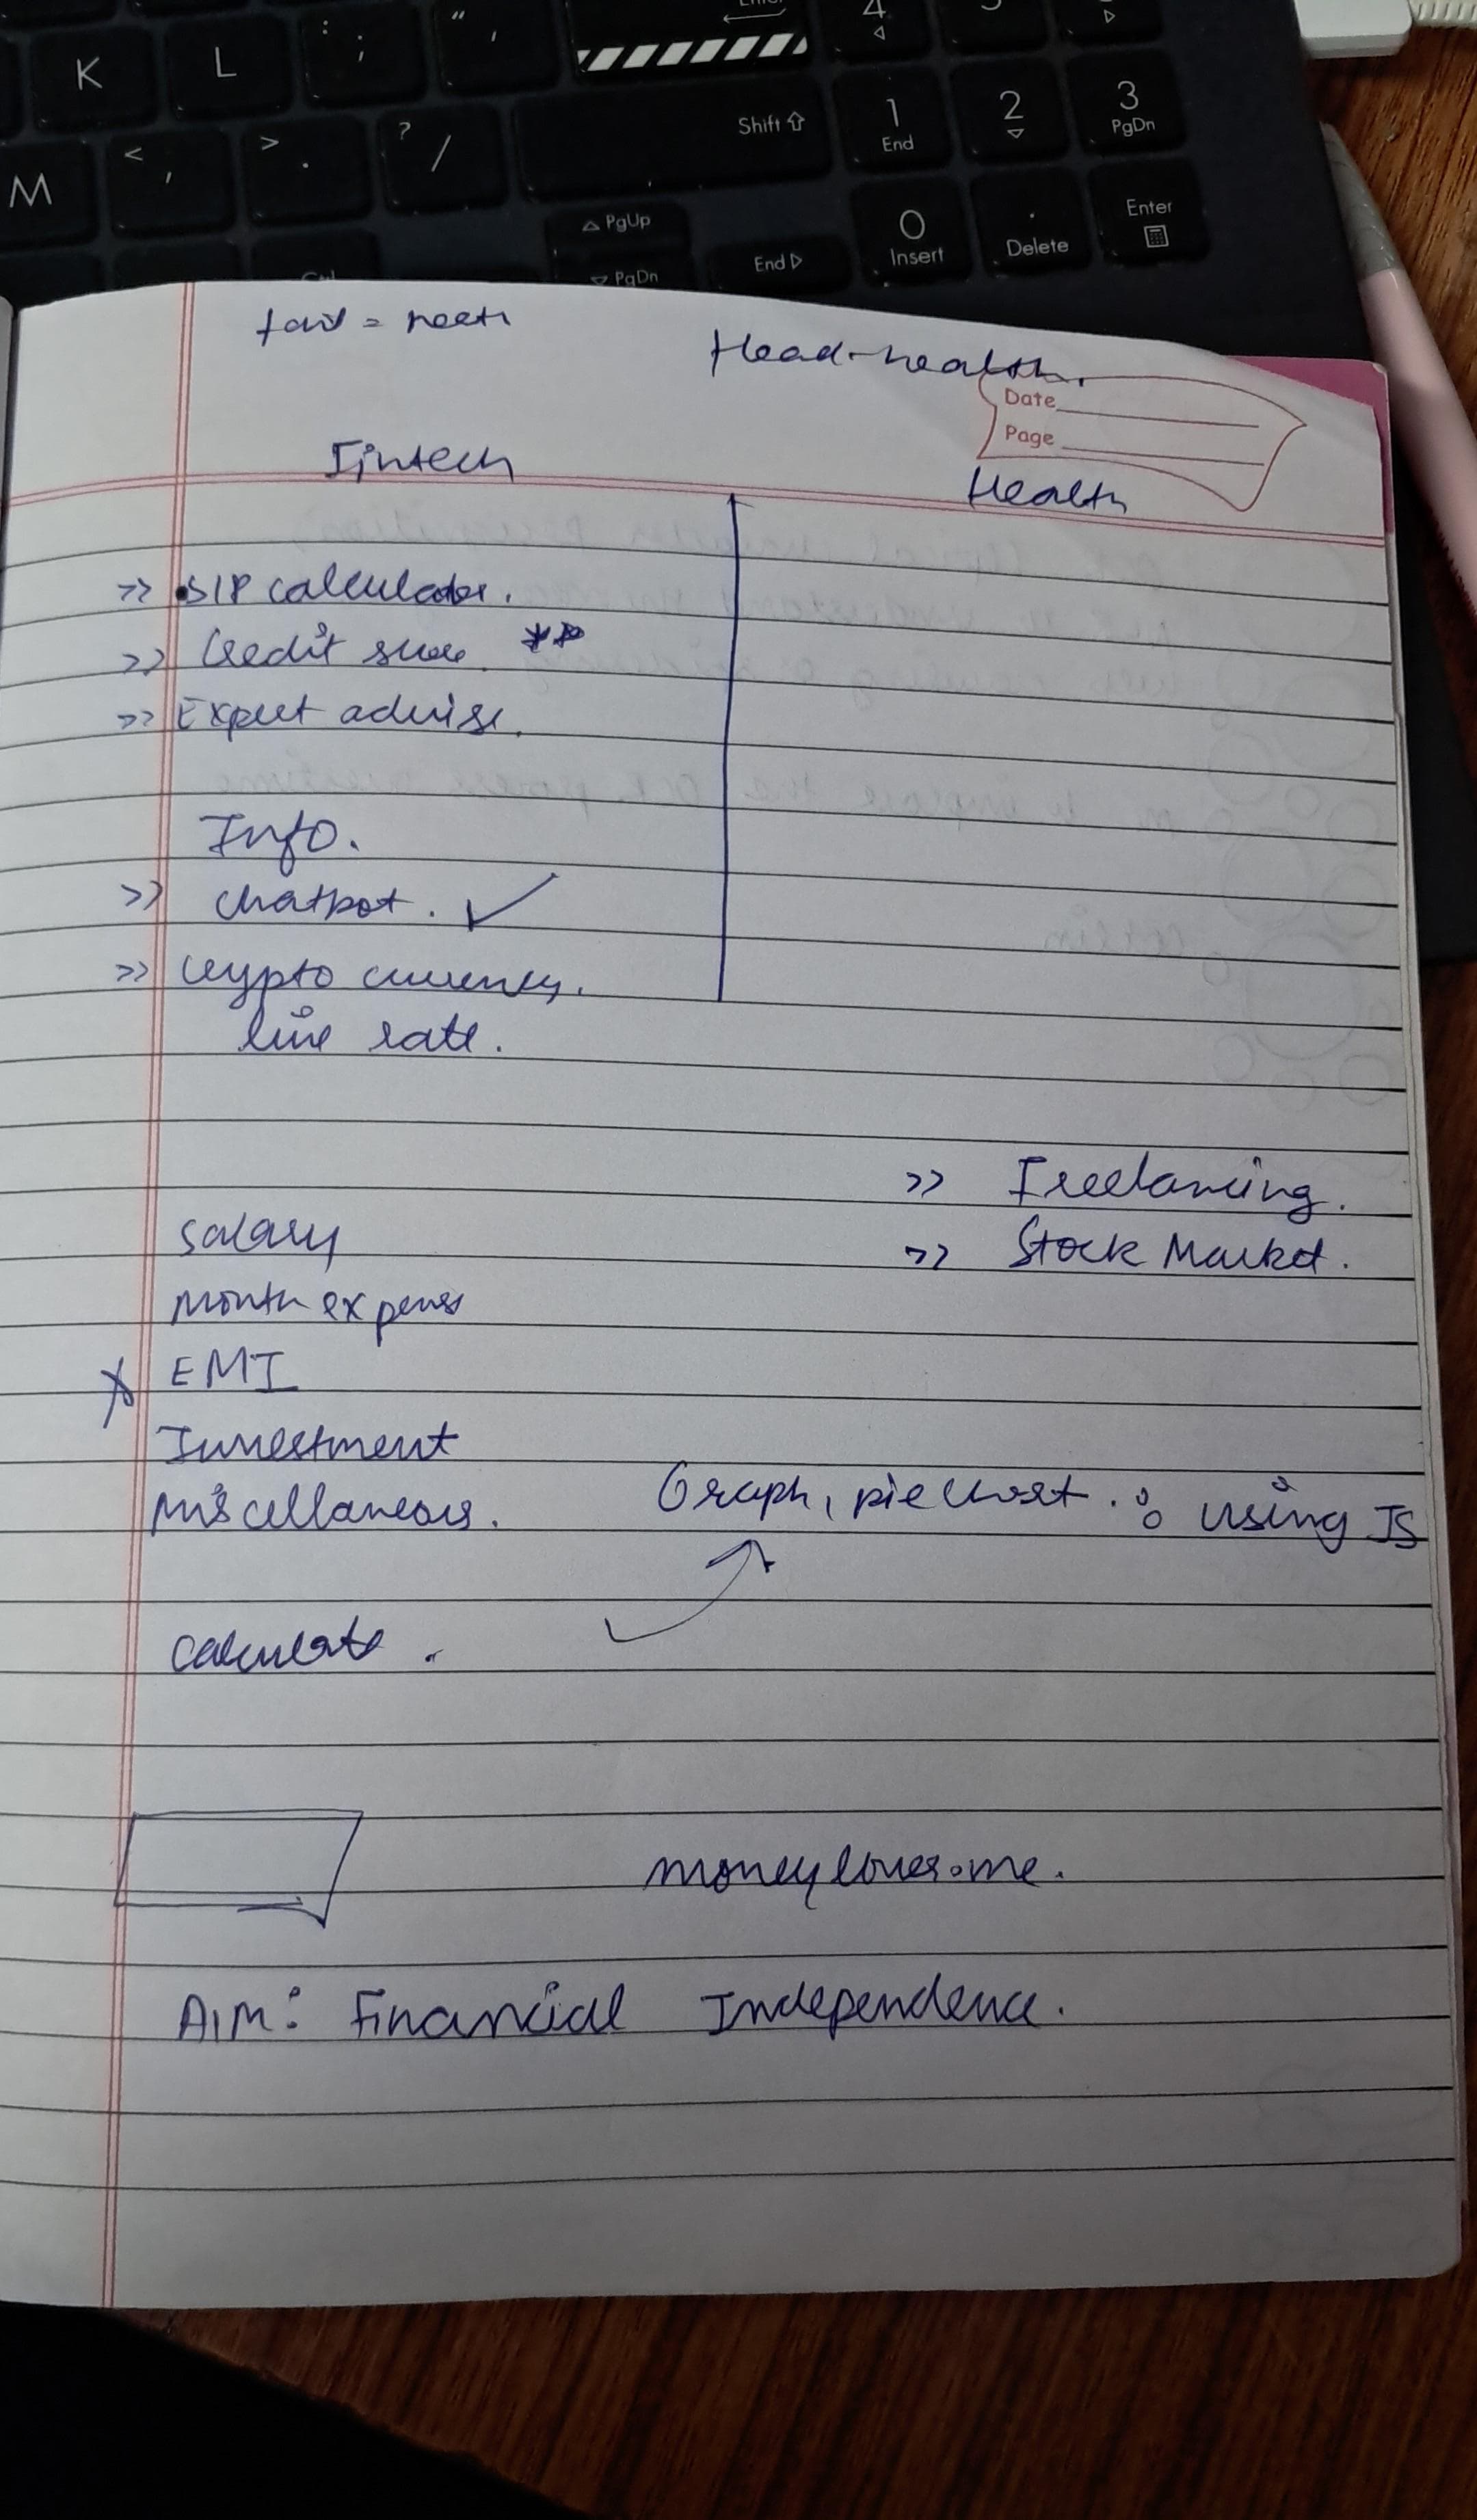 K L : ; " ' Enter 4
M < , > . ? / Shift 1 End 2 3 PgDn
PgUp PgDn End 0 Insert . Delete Enter
Head-health.
Date
Page
Fintech Health
>> SIP calculator.
>> Credit score. **
>> Expert advise.
Info.
>> chatbot. ✓
>> Crypto currency.
live rate.
>> Freelancing.
Salary
>> Stock Market.
Month expenses
EMI
Investment
Graph, pie chart. : using JS
Miscellaneous.
calculate.
moneyloves.me.
AIM: Financial Independence.